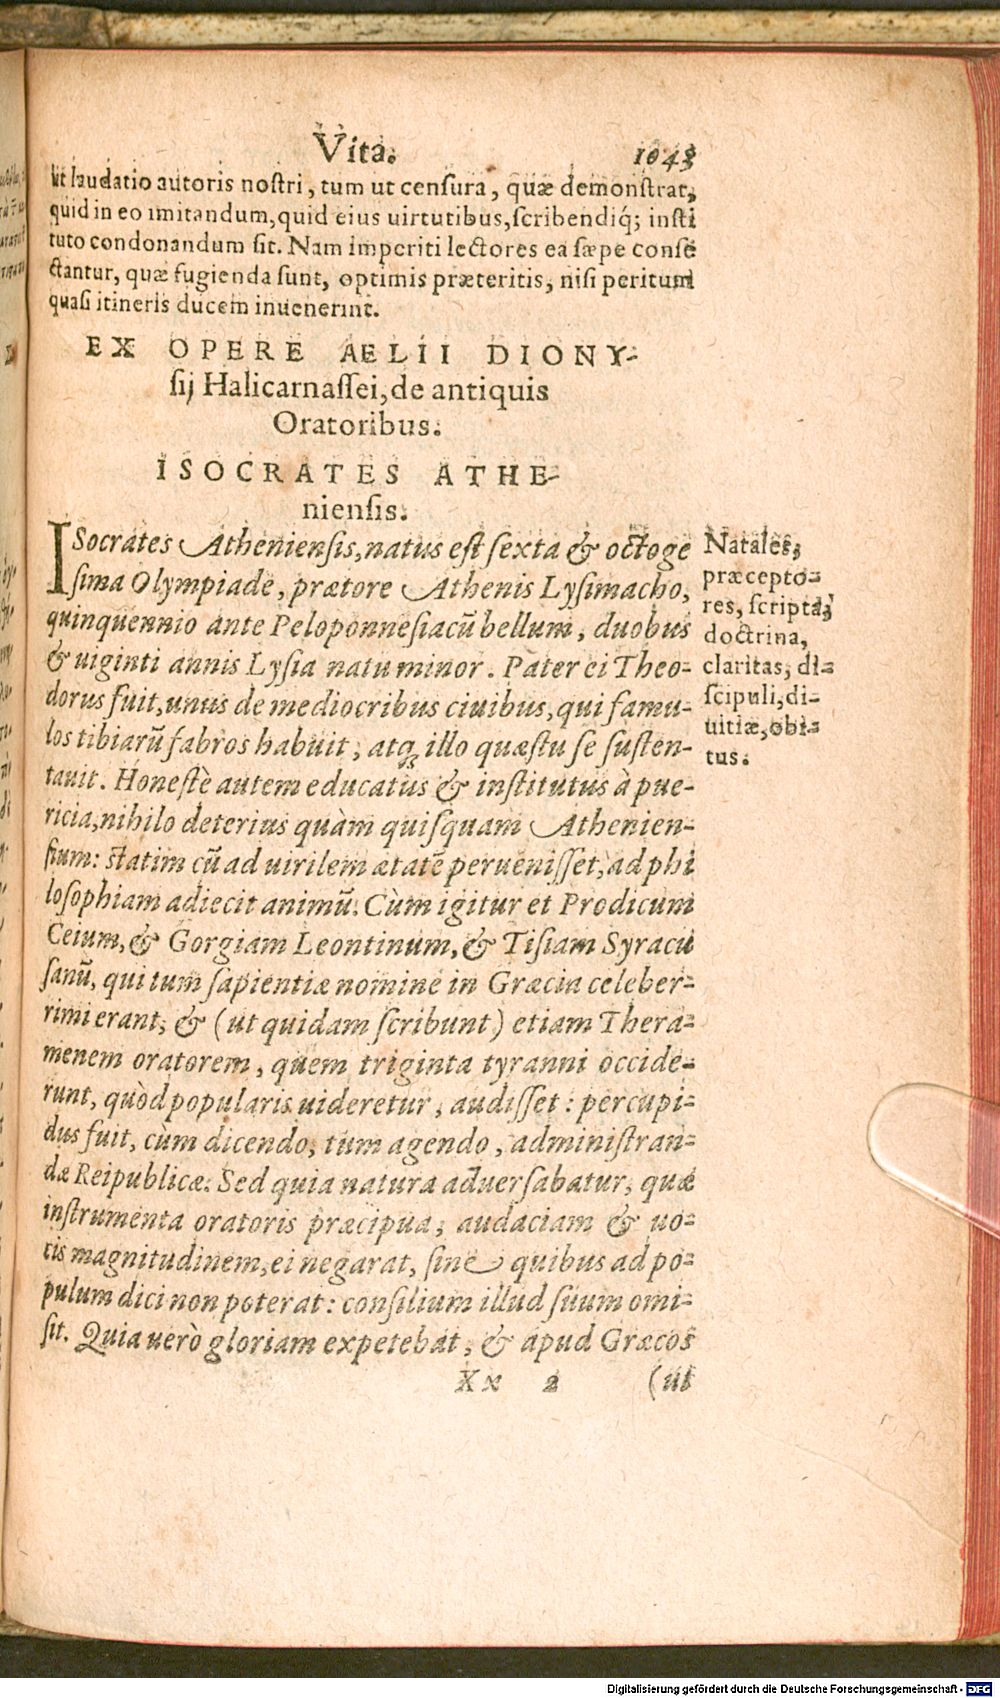 Vita. 1043
ut laudatio autoris nostri, tum ut censura, quæ demonstrat,
quid in eo imitandum, quid eius uirtutibus, scribendiq́; insti
tuto condonandum sit. Nam imperiti lectores ea sæpe conse
ctantur, quæ fugienda sunt, optimis præteritis, nisi peritum
quasi itineris ducem inuenerint.
EX OPERE AELII DIONY-
sij Halicarnassei, de antiquis
Oratoribus.
ISOCRATES ATHE-
niensis.
ISocrates Atheniensis, natus est sexta & octoge
sima Olympiade, prætore Athenis Lysimacho,
quinquennio ante Peloponnesiacū bellum, duobus
& uiginti annis Lysia natu minor. Pater ei Theo-
dorus fuit, unus de mediocribus ciuibus, qui famu-
los tibiarū fabros habuit, atq; illo quæstu se susten-
tauit. Honestè autem educatus & institutus à pue-
ricia, nihilo deterius quàm quisquam Athenien-
sium: statim cū ad uirilem ætatē peruenisset, ad phi
losophiam adiecit animū. Cùm igitur et Prodicum
Ceium, & Gorgiam Leontinum, & Tisiam Syracu
sanū, qui tum sapientiæ nomine in Græcia celeber-
rimi erant, & (ut quidam scribunt) etiam Thera-
menem oratorem, quem triginta tyranni occide-
runt, quòd popularis uideretur, audisset: percupi-
dus fuit, cùm dicendo, tum agendo, administran-
dæ Reipublicæ. Sed quia natura aduersabatur, quæ
instrumenta oratoris præcipua, audaciam & uo-
cis magnitudinem, ei negarat, sine quibus ad po-
pulum dici non poterat: consilium illud suum omi-
sit. Quia uerò gloriam expetebat, & apud Græcos
Xx 2 (ut
Natales,
præcepto-
res, scripta,
doctrina,
claritas, di-
scipuli, di-
uitiæ, obi-
tus.
Digitalisierung gefördert durch die Deutsche Forschungsgemeinschaft - DFG